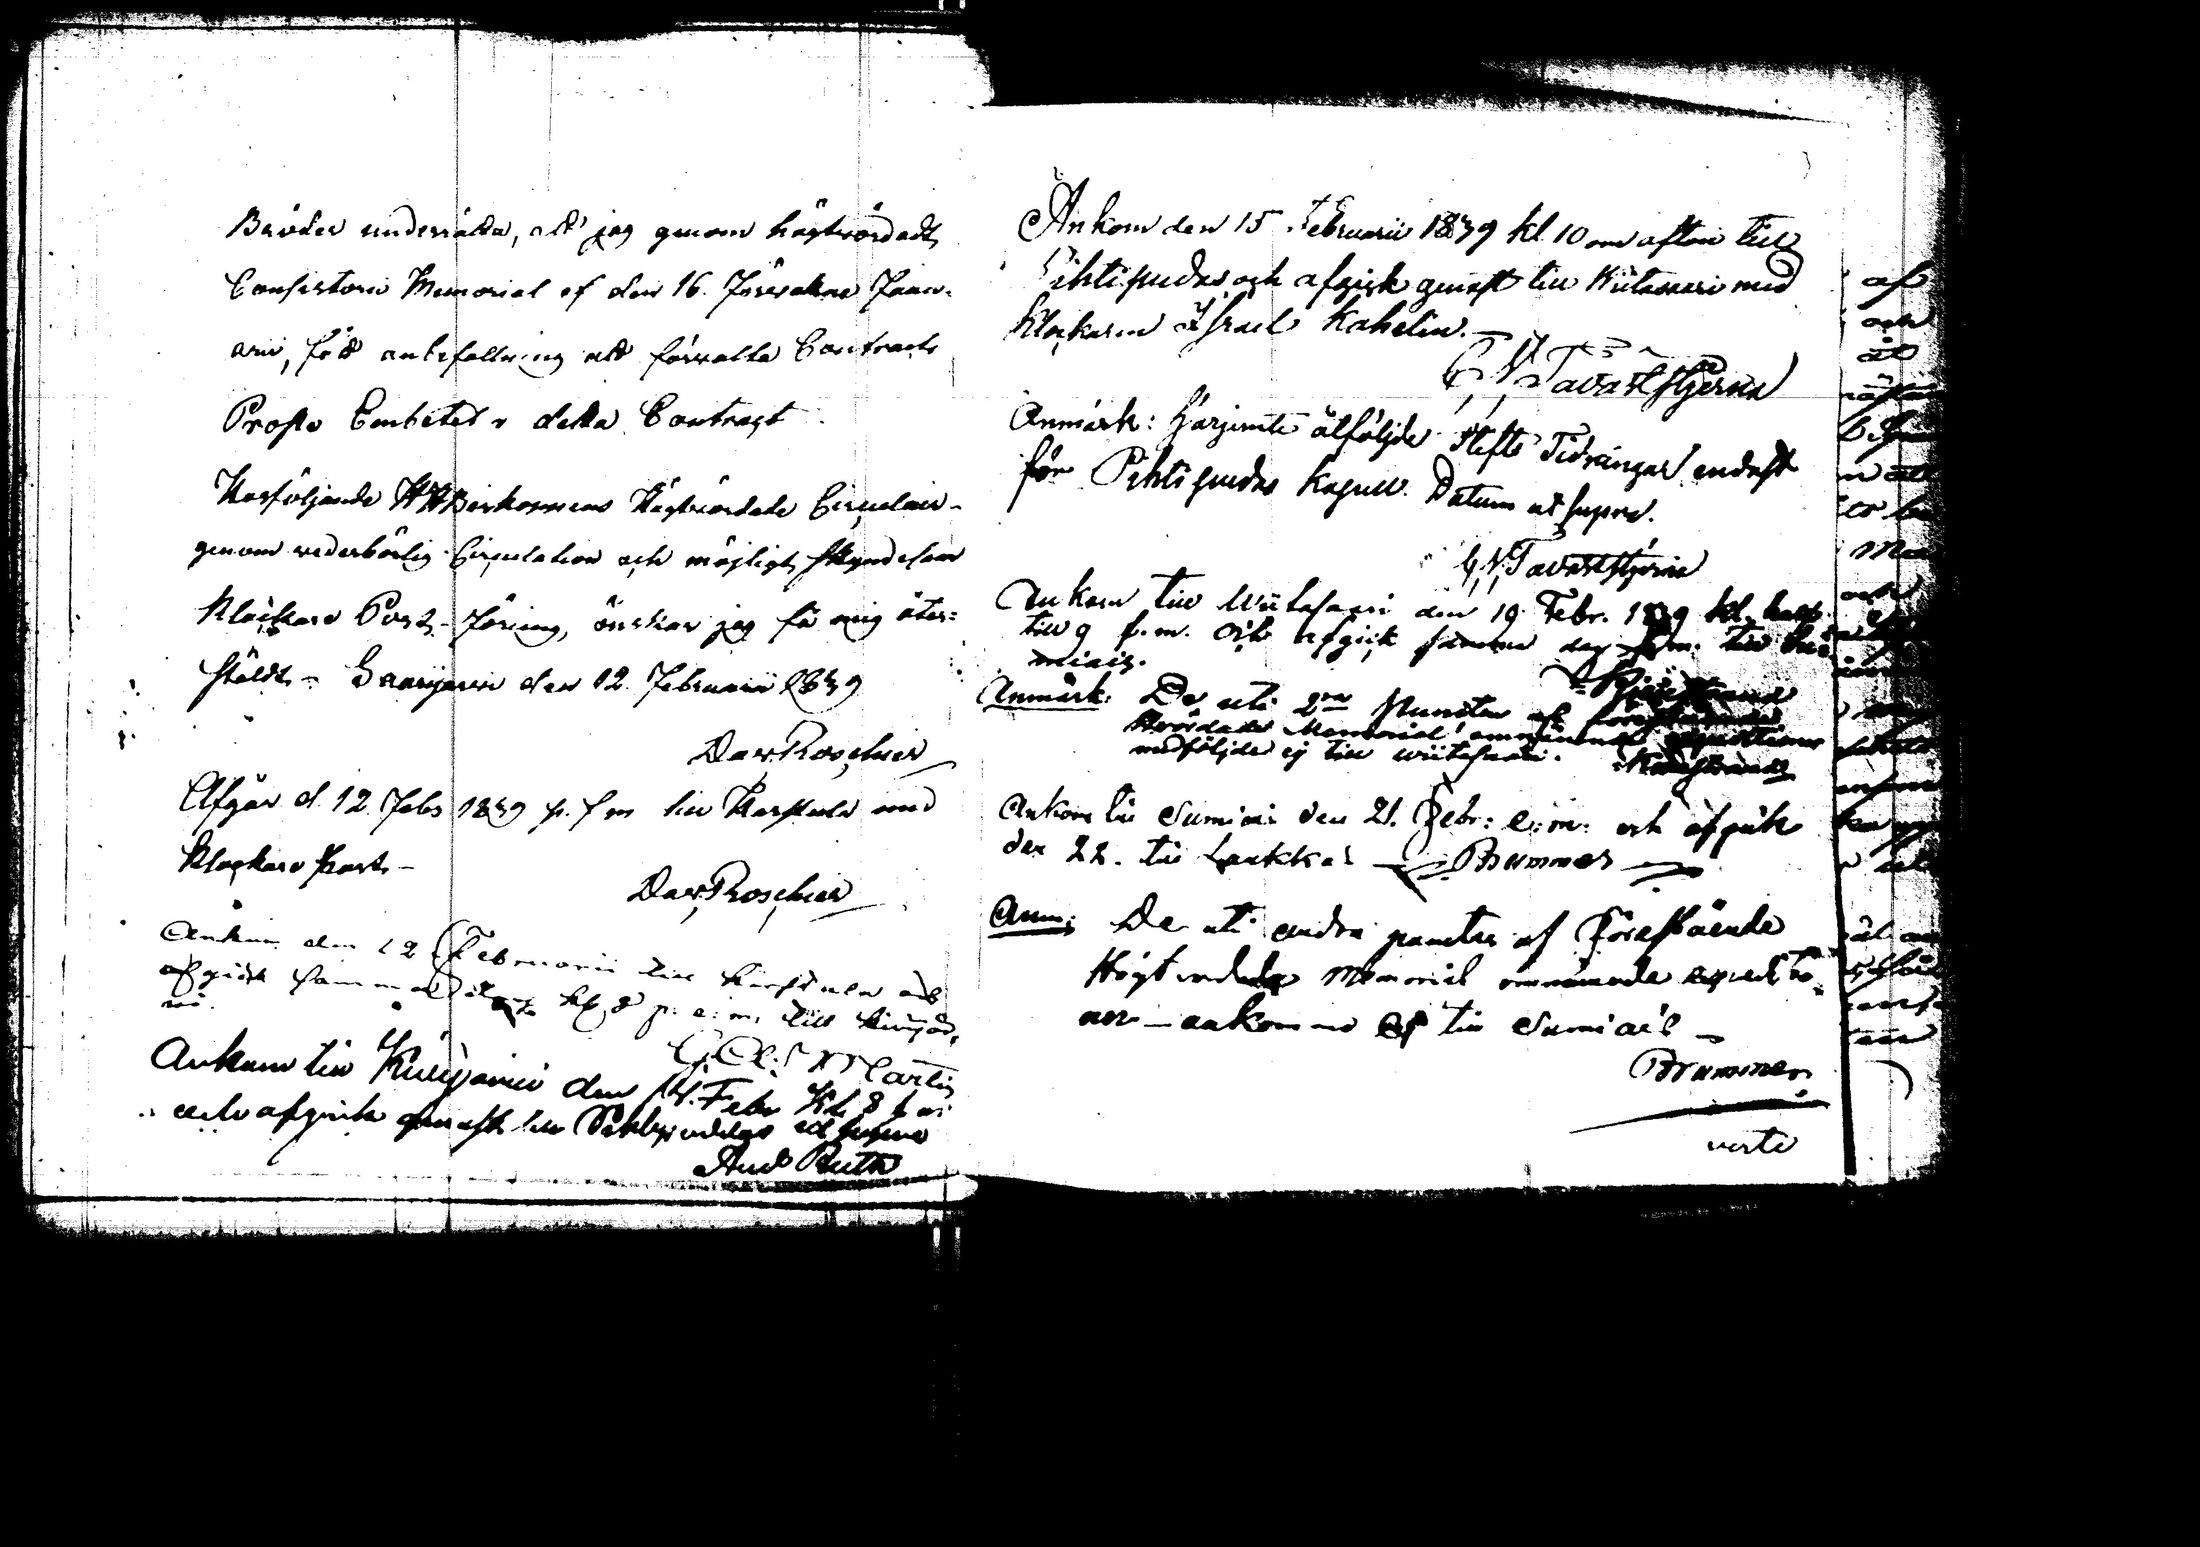 Bröder underrätta, att jag genom högtvördadt
Consistorii Memorial af den 16. förvekne Janu-
arii, fått anbefallning att förvalta Contracts
Prosts Embetet i detta Contract.
Hosföljande Högtvördade Circulair
genom vederbörlig Circulation och möjligt skyndesam
Klockare Post-föring, önskar jag få mig åter-
stäldt. Saarijärvi den 12 Februarii 1839
Dav. Roschier
Afgår d. 12 Febr 1839 p. f m till Karstula med
Klockare Post.
Dav. Roschier
Ankom den 12 Februarii till Karstula och
afgick samma dag kl 8 p. e. m. till Kivijär-
vi.
Ankom till Kivijärvi den 14. Febr Kl. 8 f m
och afgick genast till Pihtipudas ut supra
And Ruth
Ankom den 15 Februarii 1839 kl. 10 om afton till
Pihtipudas och afgick genast till Wiitasaari med
Klockaren Israel Kahelin.
G. N. Tavaststjerna
Anmärk: Härjemte åtföljde Stifts Tidningar endast
för Pihtipudas Kapell. Datum ut supra.
G. N. Tavaststjerna
Ankom till Wiitasaari den 19 Febr. 1839 kl. half
till 9 f. m. och afgick samma dag f. m. till Su-
miais.
Anmärk: De uti 2dra Puncten af förestående
Hvördade Memorial omnämnde expeditioner
medföljde ej till Wiitasaari.
Ankom till Sumiais den 21. Febr: e: m: och afgick
den 22. till Laukkas Brummer
Anm: De uti andra puncten af Föreståendе
Högtvördade Memorial omnämnde expeditio-
ner ankommo ej till Sumiais
Brummer
verte